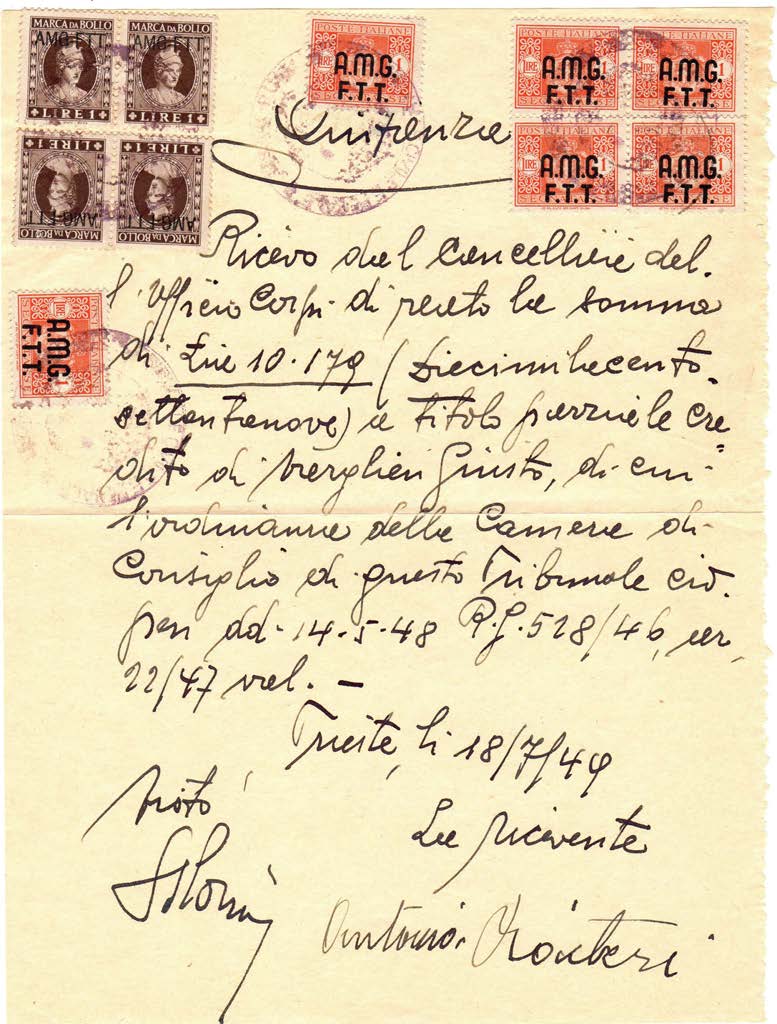 MARCA DA BOLLO MARCA DA BOLLO
AMG-FTT AMG-FTT
LIRE 1 LIRE 1
LIRE 1 LIRE 1
AMG-FTT AMG-FTT
MARCA DA BOLLO MARCA DA BOLLO
A.M.G.
LIRE 1
F.T.T.
POSTE ITALIANE POSTE ITALIANE
A.M.G. A.M.G.
LIRE 1 LIRE 1
F.T.T. F.T.T.
A.M.G. A.M.G.
LIRE 1 LIRE 1
F.T.T. F.T.T.
A.M.G.
F.T.T.
Quitanza
Ricevo dal Cancelliere del-
l'Ufficio Corpi di reato la somma
di Lire 10.179 (Diecimilacento-
settantanove) a titolo parziale cre=
dito di Giusto, di cui
l'ordinanza della Camera di
Consiglio di questo Tribunale civ.
pen dd. 14-5-48 R.G. 528/46,
22/47 val. -
Trieste, li 18/7/49
Visto
La ricevente